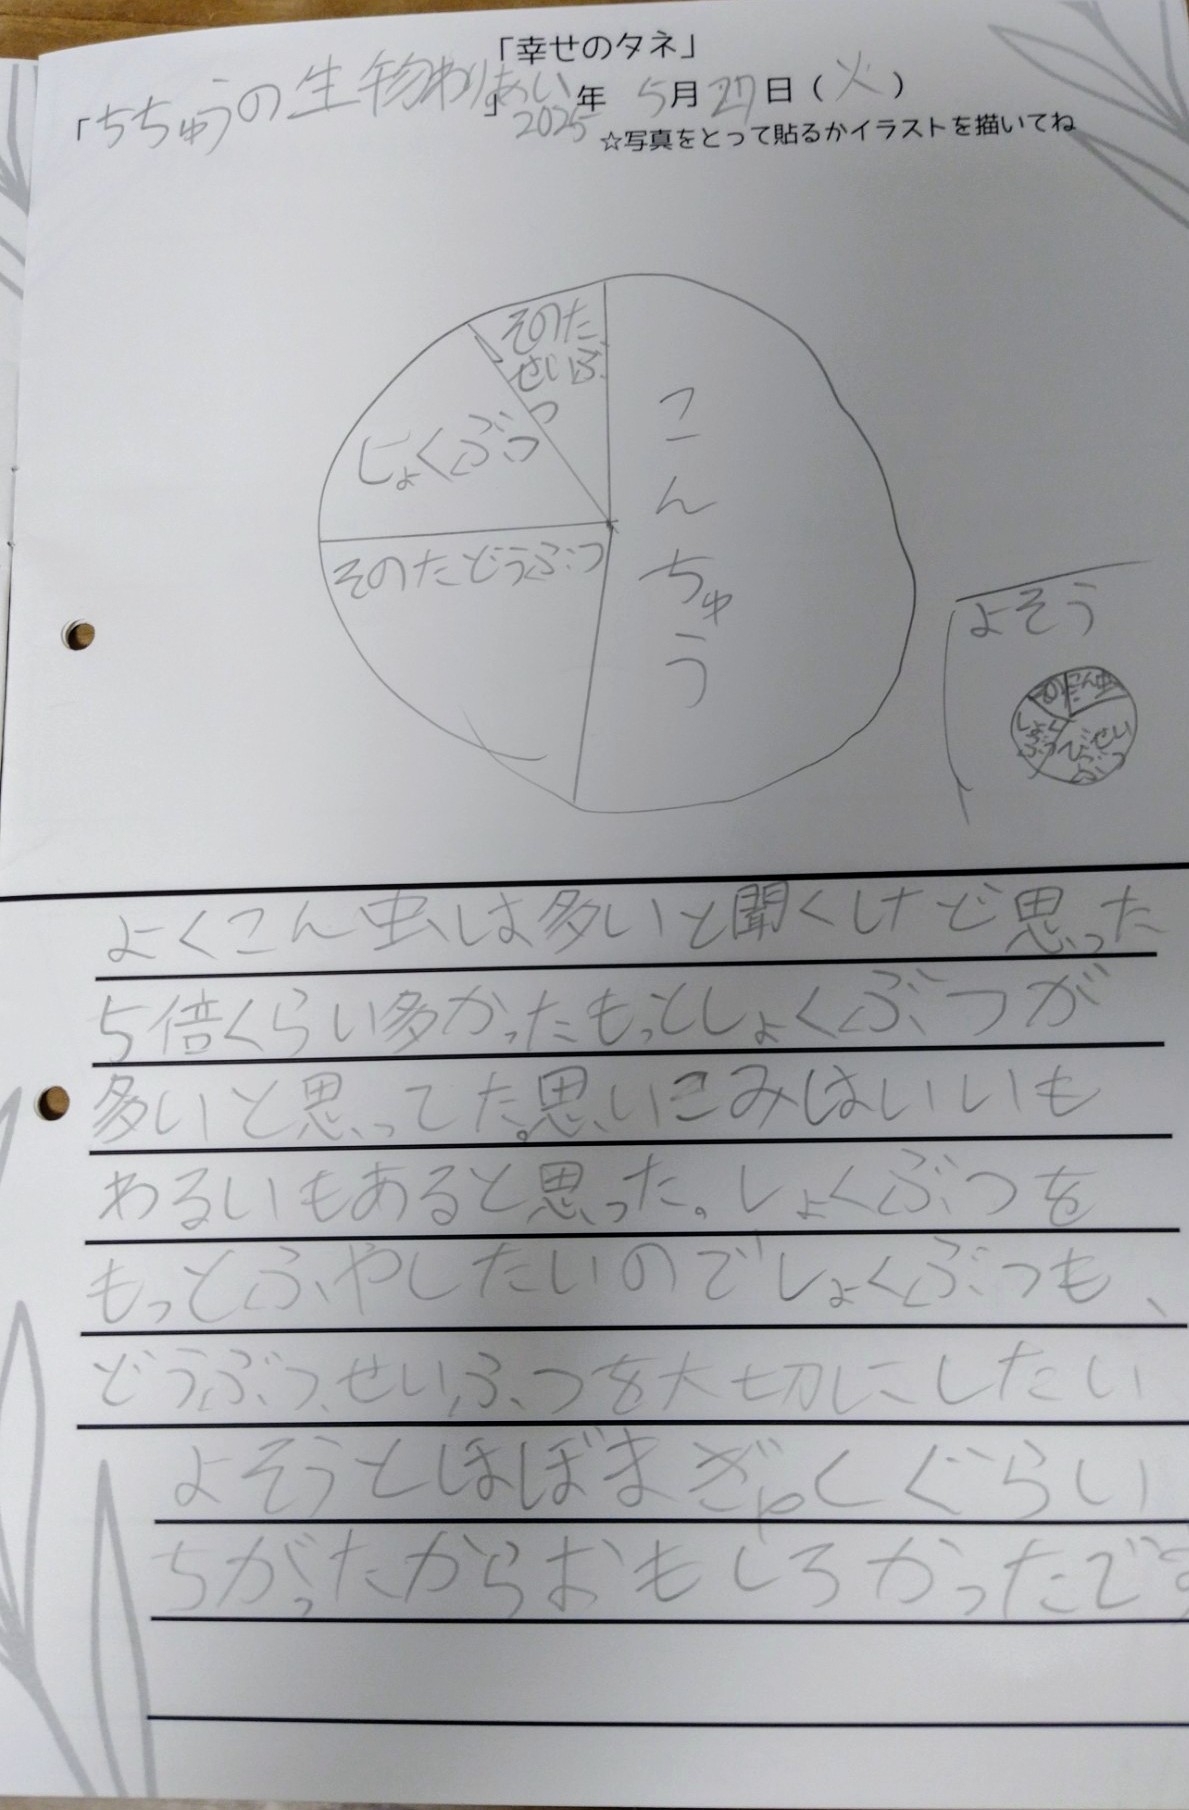 「幸せのタネ」
「ちちゅうの生物わりあい」
2025年 5月27日（火）
☆写真をとって貼るかイラストを描いてね
そのた
せいぶ
つ
しょくぶつ
そのたどうぶつ
こんちゅう
よそう
こん虫
しょく
ぶつ
びせい
ぶつ
よくこん虫は多いと聞くけど思った
5倍くらい多かったもっとしょくぶつが
多いと思ってた。思いこみはいいも
わるいもあると思った。しょくぶつを
もっとふやしたいのでしょくぶつも、
どうぶつ、せいふつを大切にしたい
よそうとほぼまぎゃくぐらい
ちがったからおもしろかったです